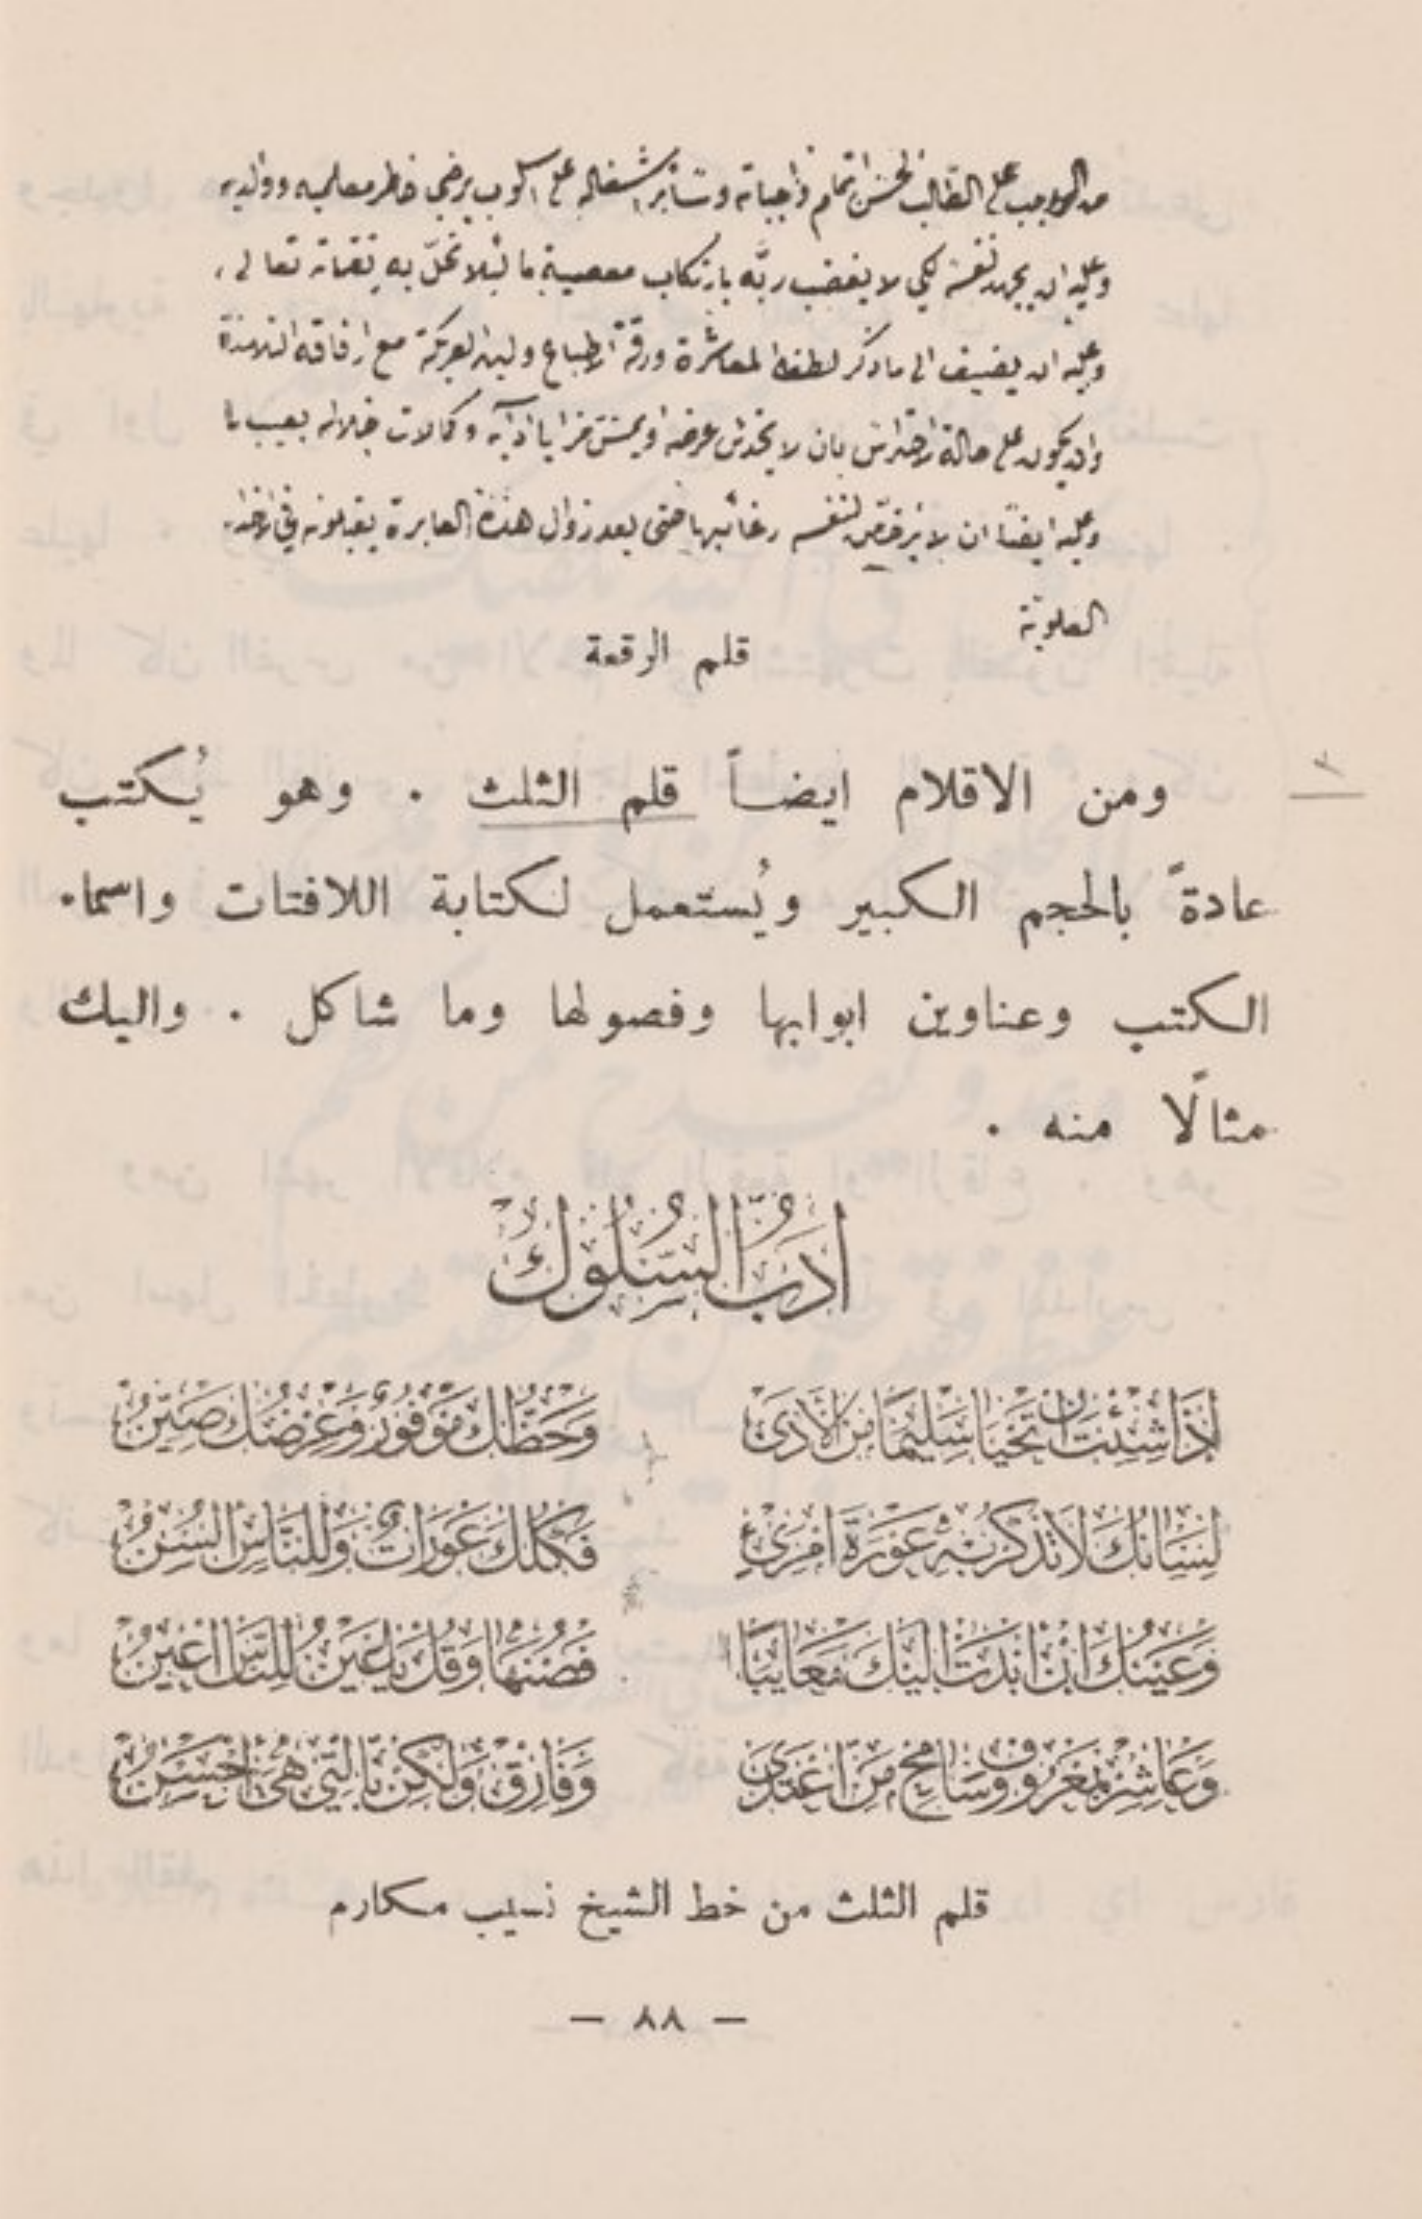 من الواجب على الطالب لحسن اتمام واجباته وسائر اشغاله على اسلوب يرضي خاطر معلميه ووالديه
وعليه ان يجهد نفسه لكي لا يغضب ربّه بارتكاب معصية ما لئلا تحلّ به نقماته تعالى ،
وعليه ان يضيف الى ما ذكر لطف المعاشرة ورقة الطباع ولين العريكة مع ارفاقه التلامذة
وان يكون على حالة الاحتراس بان لا يخدش عرضه او يمس مزايا آدابه وكمالات خلاله بعيب ما
وعليه ايضًا ان لا يرخّص لنفسه رغائبها حتى بعد زوال هذه العابرة
العلوية
قلم الرقعة
ومن الاقلام ايضاً قلم الثلث . وهو يُكتب
عادةً بالحجم الكبير ويُستعمل لكتابة اللافتات واسماء
الكتب وعناوين ابوابها وفصولها وما شاكل . واليك
مثالًا منه .
اَدَبُ السُّلُوكِ
اِذَا شِئْتَ اَنْ تَحْيَا سَلِيْمًا مِنَ الْأَذَى وَحَظُّكَ مَوْفُورٌ وَعِرْضُكَ صَيِّنُ
لِسَانُكَ لَا تَذْكُرْ بِهِ عَوْرَةَ امْرِئٍ فَكُلُّكَ عَوْرَاتٌ وَلِلنَّاسِ اَلْسُنُ
وَعَيْنُكَ اِنْ اَبْدَتْ اِلَيْكَ مَعَايِبًا فَصُنْهَا وَقُلْ يَا عَيْنُ لِلنَّاسِ اَعْيُنُ
وَعَاشِرْ بِمَعْرُوفٍ وَسَامِحْ مَنِ اعْتَدَى وَفَارِقْ وَلٰكِنْ بِالَّتِي هِيَ اَحْسَنُ
قلم الثلث من خط الشيخ نسيب مكارم
— ٨٨ —